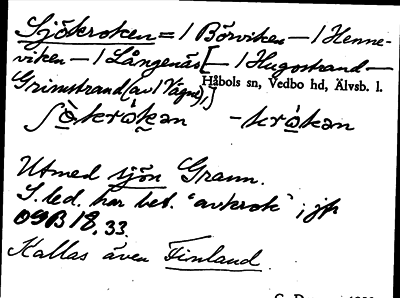 Sjökroken = 1 Börviken — 1 Henne-
viken — 1 Långenäs [— 1 Hugostrand —
Håbols sn, Vedbo hd, Älvsb. l.
Grimstrand (av 1 Vågne),]
-krókan
Utmed sjön Grann.
S. led. har bet. "avkrok"; jfr
OGB 18, 33.
Kallas även Finland.